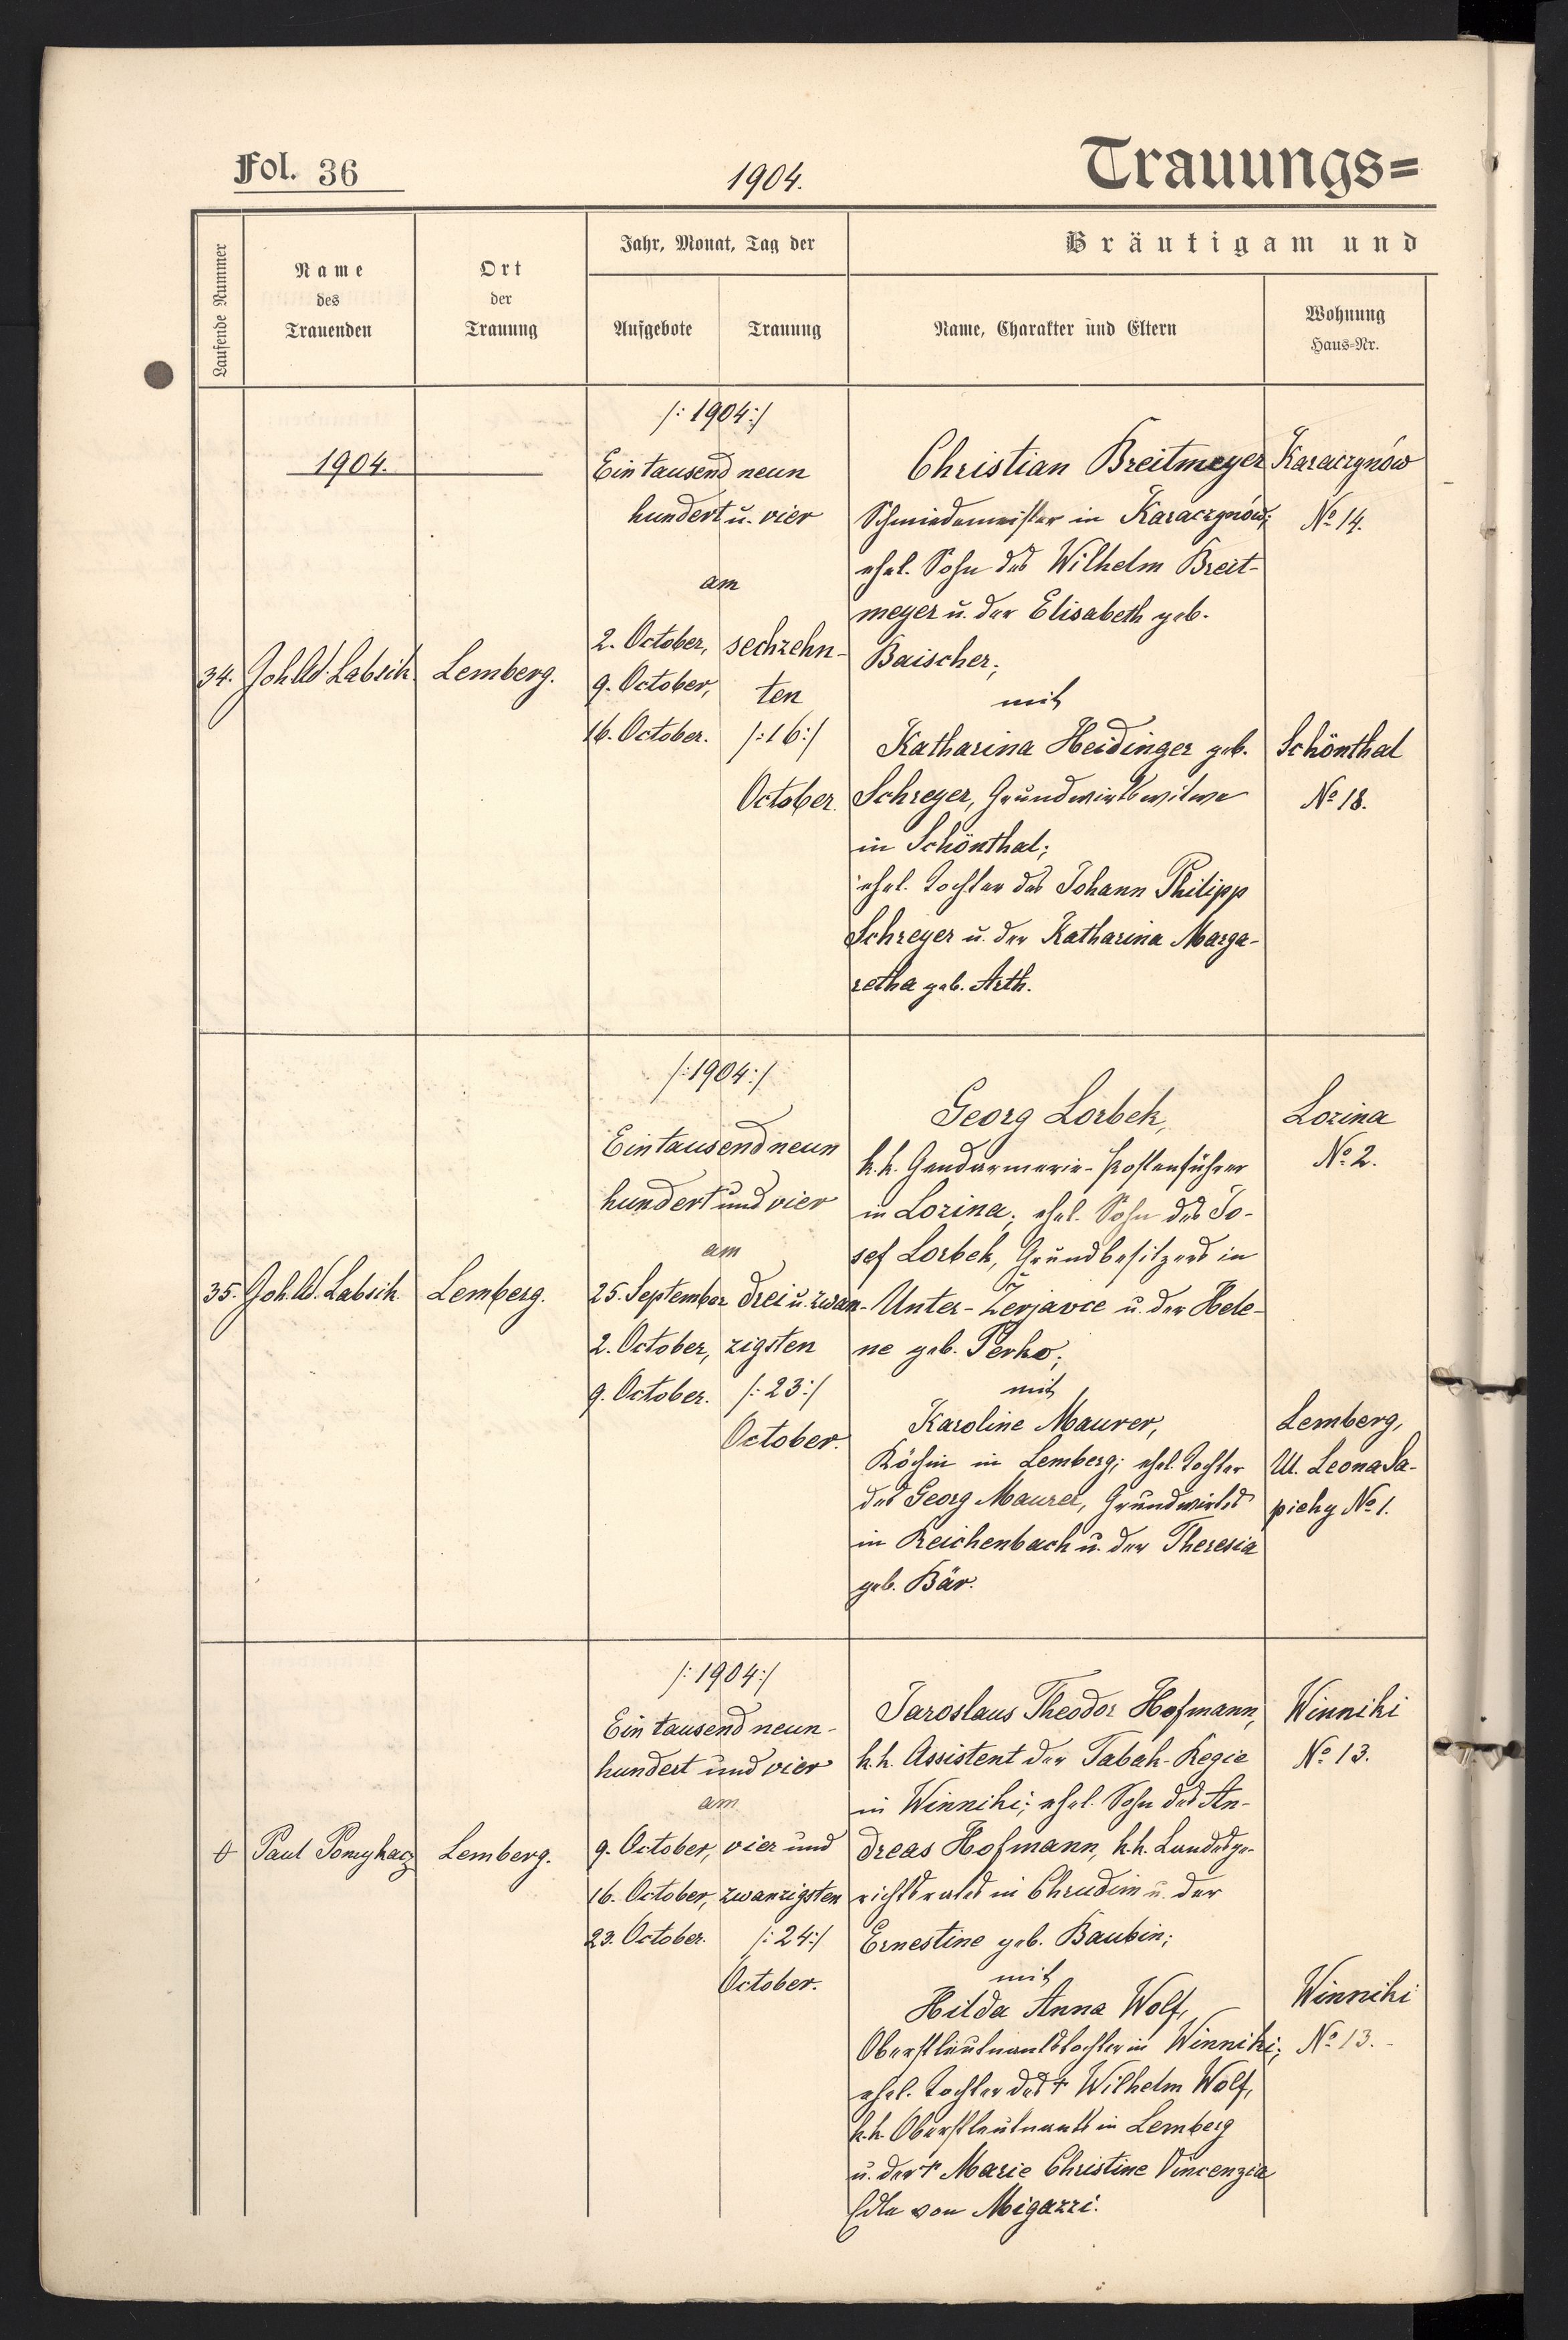 Fol. 36
1904.
Trauungs=
Laufende Nummer
Name
des
Trauenden
Ort
der
Trauung
Jahr, Monat, Tag der
Aufgebote
Trauung
Bräutigam und
Name, Charakter und Eltern
Wohnung
Haus=Nr.
1904.
34.
Joh. Ad. Labsik
Lemberg.
/:1904:/
Ein tausend neun
hundert u. vier
am
2. October,
9. October,
16. October.
sechzehn-
ten
/:16:/
October.
Christian Breitmeyer
Schmiedemeister in Karaczynów;
ehel. Sohn des Wilhelm Breit-
meyer u. der Elisabeth geb.
Baischer;
mit
Katharina Heidinger geb.
Schreyer, Grundwirtswitwe
in Schönthal;
ehel. Tochter des Johann Philipp
Schreyer u. der Katharina Marga-
retha geb. Arth.
Karaczynów
No 14.
Schönthal
No 18.
35.
Joh. Ad. Labsik.
Lemberg.
/:1904:/
Ein tausend neun
hundert und vier
am
25. September
2. October,
9. October.
drei u. zwan-
zigsten
/:23:/
October.
Georg Lorbek,
k. k. Gendarmerie-Postenführer
in Lozina; ehel. Sohn des Jo-
sef Lorbek, Grundbesitzers in
Unter-Žerjavce u. der Hele-
ne geb. Perko;
mit
Karoline Maurer,
Köchin in Lemberg; ehel. Tochter
des Georg Maurer, Grundwirtes
in Reichenbach u. der Theresia
geb. Bär.
Lozina
No 2.
Lemberg,
Ul. Leona Sa-
piehy No 1.
Paul Pomykacz
Lemberg.
/:1904:/
Ein tausend neun-
hundert und vier
am
9. October,
16. October,
23. October.
vier und
zwanzigsten
/:24:/
October.
Jaroslaus Theodor Hofmann,
k. k. Assistent der Tabak-Regie
in Winniki; ehel. Sohn des An-
dreas Hofmann, k. k. Landesge-
richtsrates in Chrudim u. der
Ernestine geb. Baubin;
mit
Hilda Anna Wolf,
Oberstleutnantstochter in Winniki;
ehel. Tochter des † Wilhelm Wolf,
k. k. Oberstleutnants in Lemberg
u. der † Marie Christine Vincenzia
Edle von Migazzi.
Winniki
No 13.
Winniki
No 13.